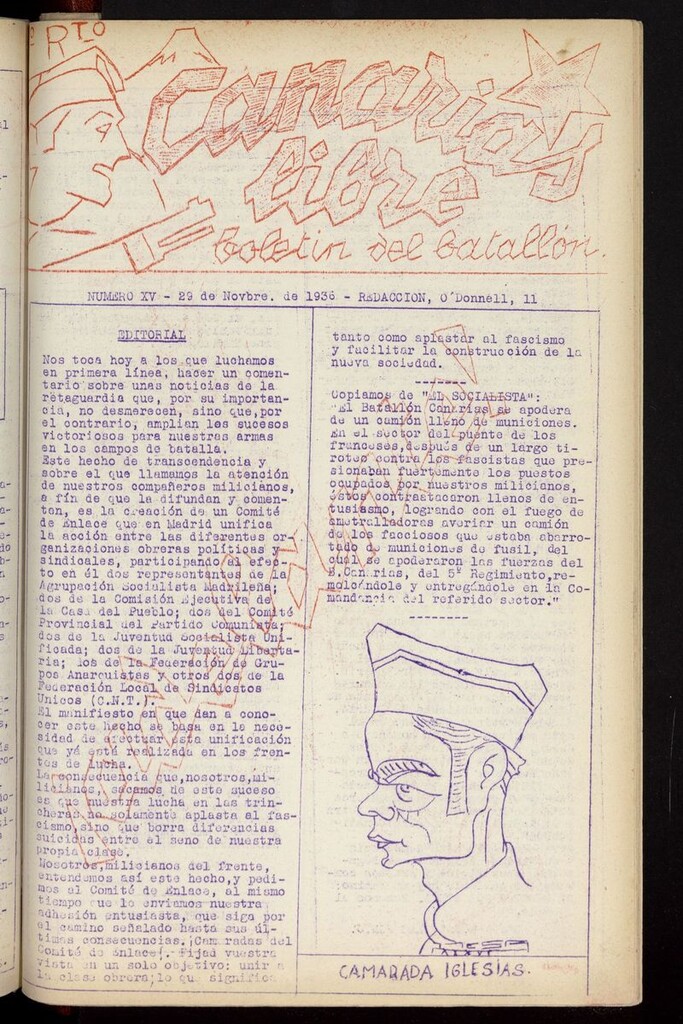 RTO
Canarias
libre
boletin del batallón.
NUMERO XV - 29 de Novbre. de 1936 - REDACCION, O'Donnell, 11
EDITORIAL
Nos toca hoy a los que luchamos
en primera línea, hacer un comen-
tario sobre unas noticias de la
retaguardia que, por su importan-
cia, no desmerecen, sino que,por
el contrario, amplian los sucesos
victoriosos para nuestras armas
en los campos de batalla.
Este hecho de transcendencia y
sobre el que llamamos la atención
de nuestros compañeros milicianos,
a fin de que la difundan y comen-
ten, es la creación de un Comité
de Enlace que en Madrid unifica
la acción entre las diferentes or-
ganizaciones obreras políticas y
sindicales, participando al efec-
to en él dos representantes de la
Agrupación Socialista Madrileña;
dos de la Comisión Ejecutiva de
la Casa del Pueblo; dos del Comité
Provincial del Partido Comunista;
dos de la Juventud Socialista Uni-
ficada; dos de la Juventud Liberta-
ria; dos de la Federación de Gru-
pos Anarquistas y otros dos de la
Federación Local de Sindicatos
Unicos (C.N.T.).
El manifiesto en que dan a cono-
cer este hecho se basa en la nece-
sidad de efectuar esta unificación
que yá está realizada en los fren-
tes de lucha.
La consecuencia que,nosotros,mi-
licianos, sacamos de este suceso
es que nuestra lucha en las trin-
cheras no solamente aplasta al fas-
cismo,sino que borra diferencias
suicidas entre el seno de nuestra
propia clase.
Nosotros,milicianos del frente,
entendemos así este hecho,y pedi-
mos al Comité de Enlace, al mismo
tiempo que le enviamos nuestra
adhesión entusiasta, que siga por
el camino señalado hasta sus úl-
timas consecuencias.¡Camaradas del
Comité de Enlace!. Fijad vuestra
vista en un solo objetivo: unir a
la clase obrera;lo que significa
tanto como aplastar al fascismo
y fucilitar la construcción de la
nueva sociedad.
Copiamos de "EL SOCIALISTA":
"El Batallón Canarias se apodera
de un camión lleno de municiones.
En el sector del puente de los
franceses,después de un largo ti-
roteo contra los fascistas que pre-
sionaban fuertemente los puestos
ocupados por nuestros milicianos,
éstos contraatacaron llenos de en-
tusiasmo, logrando con el fuego de
ametralladoras averiar un camión
de los facciosos que estaba abarro-
tado de municiones de fusil, del
cual se apoderaron las fuerzas del
B.Canarias, del 5º Regimiento,re-
molcándole y entregándole en la Co-
mandancia del referido sector."
CAMARADA IGLESIAS.